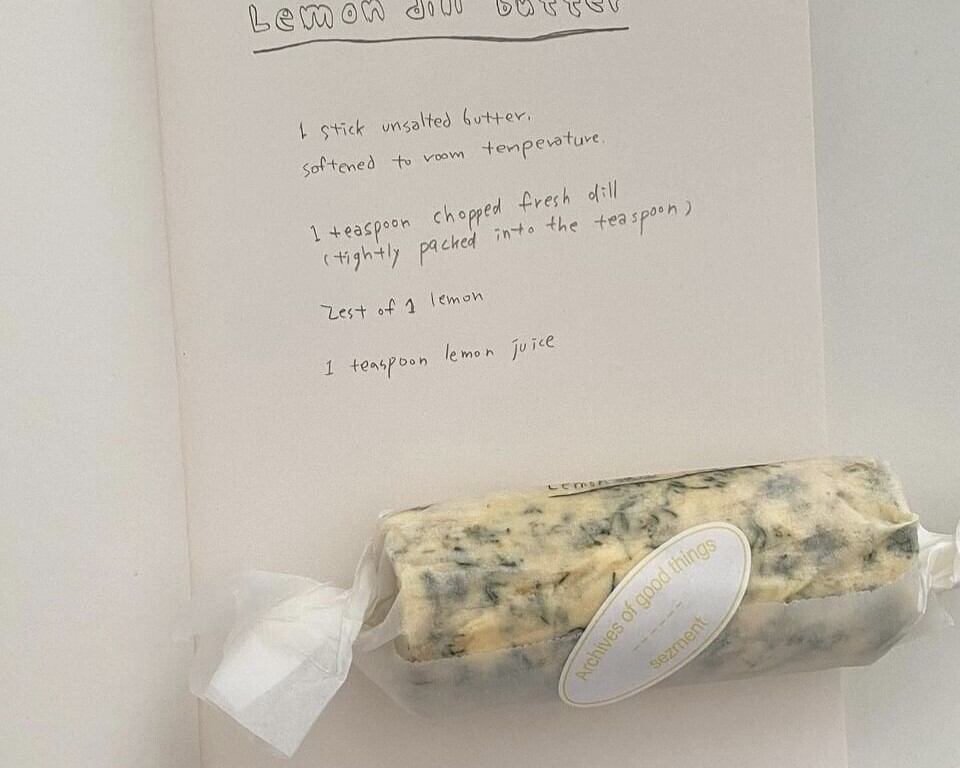 Lemon dill butter
1 stick unsalted butter,
softened to room temperature.
1 teaspoon chopped fresh dill
(tightly packed into the teaspoon)
Zest of 1 lemon
1 teaspoon lemon juice
Lemon
Archives of good things
sezment